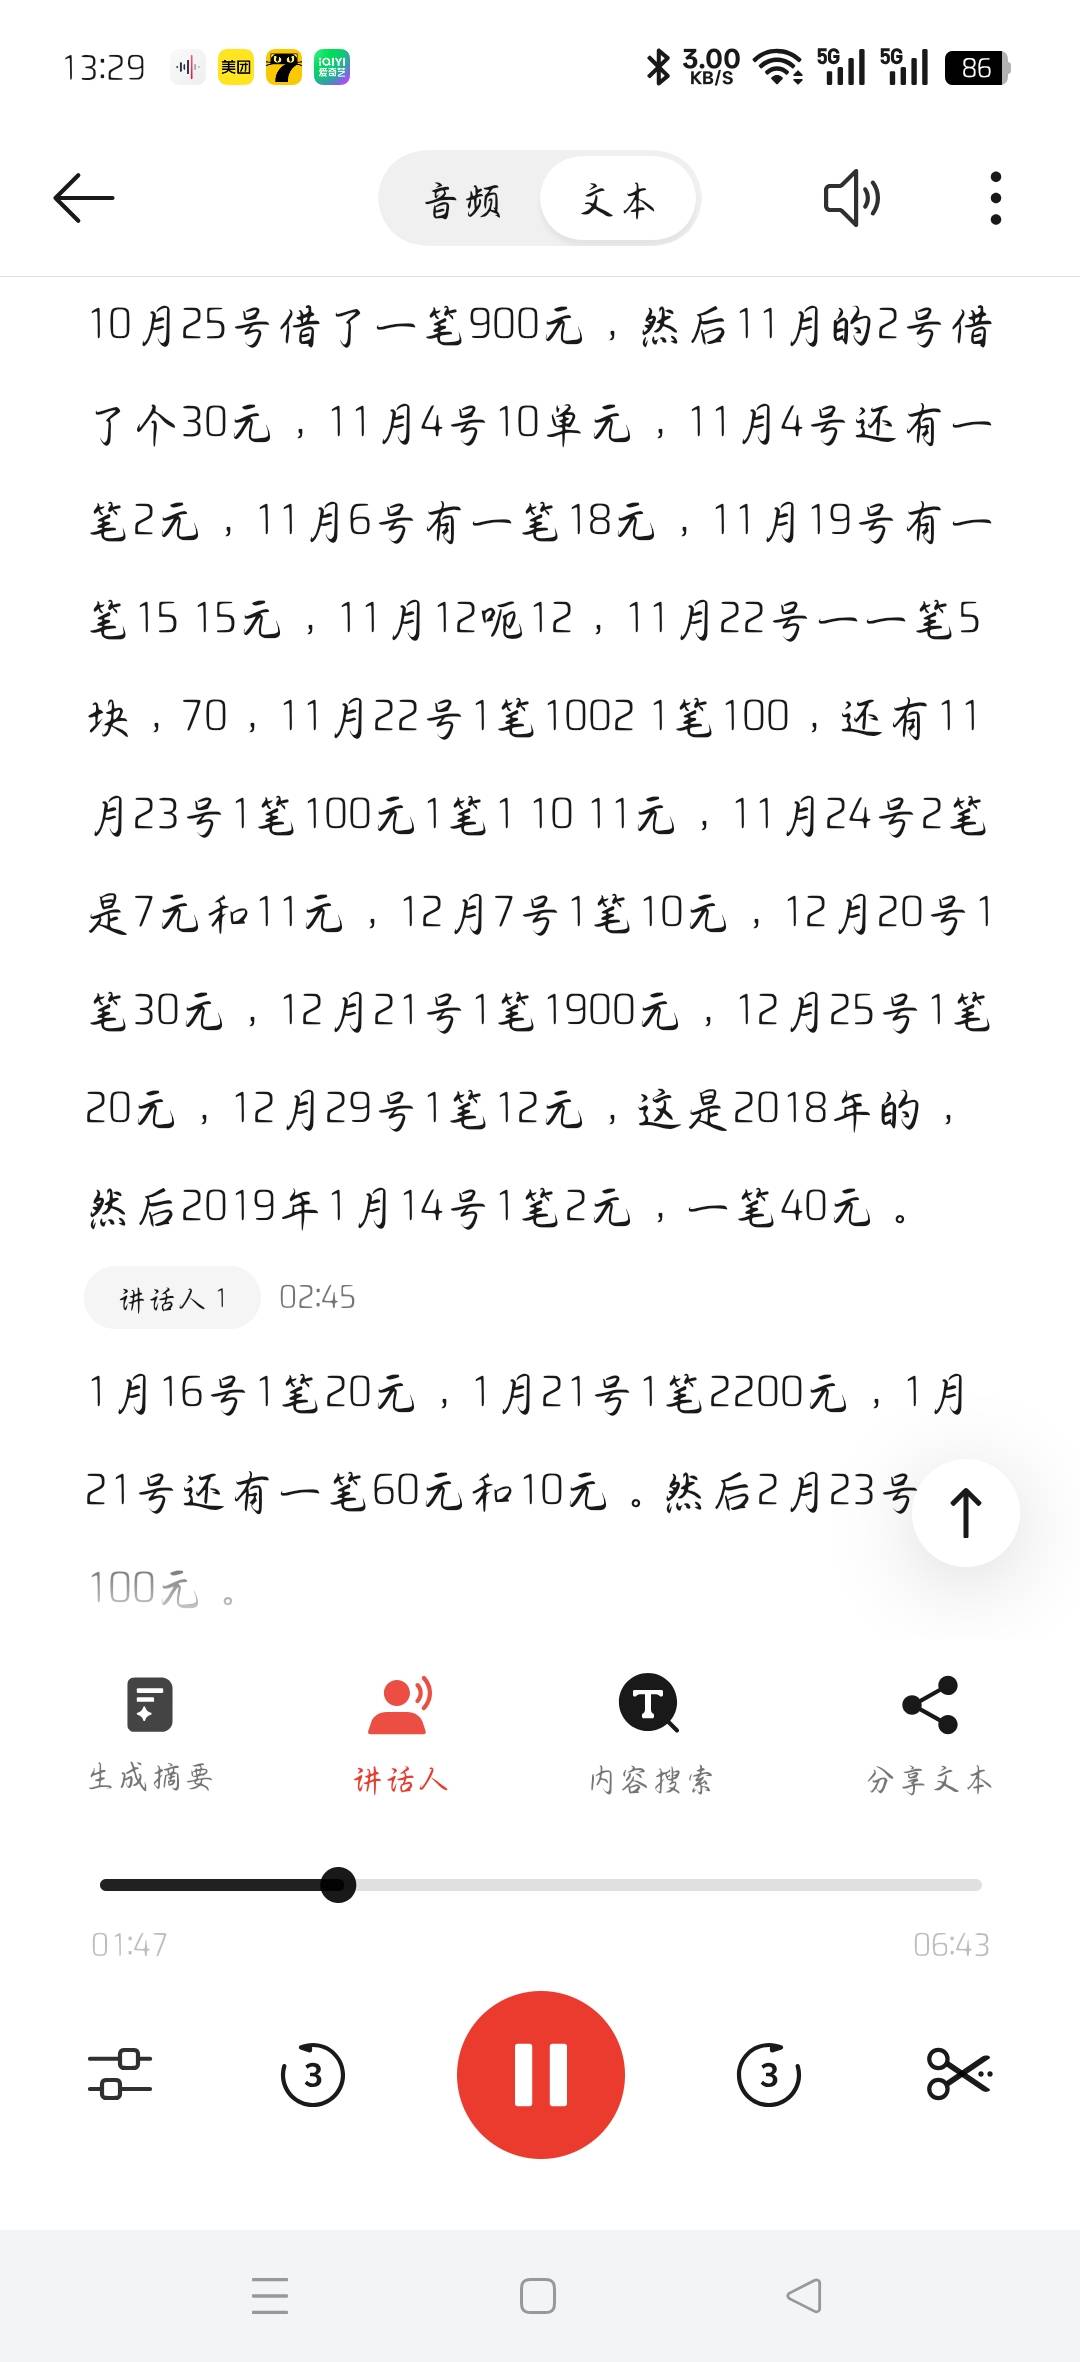 13:29
美团
iQIYI
爱奇艺
3.00
KB/S
5G
5G
86
音频
文本
10月25号借了一笔900元，然后11月的2号借
了个30元，11月4号10单元，11月4号还有一
笔2元，11月6号有一笔18元，11月19号有一
笔15 15元，11月12呃12，11月22号一一笔5
块，70，11月22号1笔1002 1笔100，还有11
月23号1笔100元1笔1 10 11元，11月24号2笔
是7元和11元，12月7号1笔10元，12月20号1
笔30元，12月21号1笔1900元，12月25号1笔
20元，12月29号1笔12元，这是2018年的，
然后2019年1月14号1笔2元，一笔40元。
讲话人 1
02:45
1月16号1笔20元，1月21号1笔2200元，1月
21号还有一笔60元和10元。然后2月23号
100元。
生成摘要
讲话人
内容搜索
分享文本
01:47
06:43
3
3